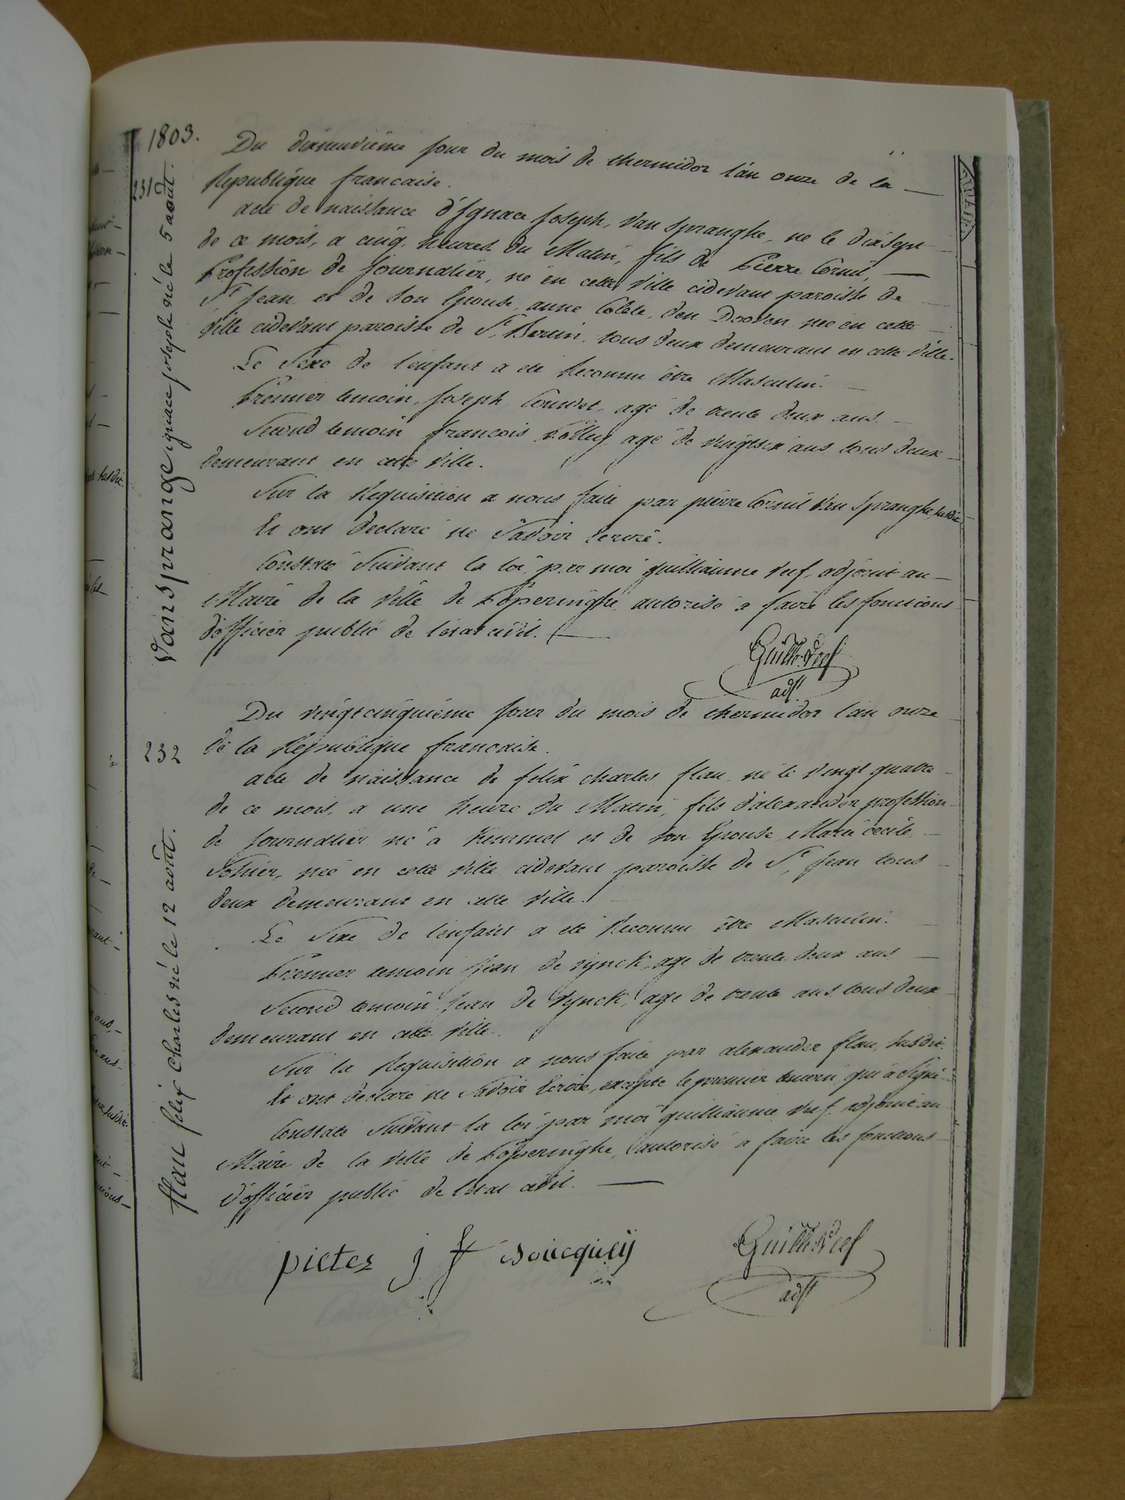 1803.
231
Vansprange ignace joseph né le 5 août.
Du dixneuvième jour du mois de thermidor l'an onze de la
Republique francaise.
acte de naissance d'Ignace Joseph, Van Spranghe, né le dixsept
de ce mois, a cinq heures du Matin, fils de Pierre Cornil,
Profession de Journalier, né en cette ville cidevant paroisse de
St Jean et de son Epouse, anne Colete, den Dooven née en cette
ville cidevant paroisse de St Bertin, tous deux demeurant en cette ville.
Le Sexe de l'enfant a été Reconnu être Masculin.
Premier temoin, Joseph agé de trente deux ans
Second temoin françois agé de vingtsix ans tous deux
demeurant en cette ville.
Sur la Requisition a nous faite par pierre Cornil Van Spranghe susdit
Et ont declaré ne Savoir Ecrire.
Constaté Suivant la loi par moi guilliaume Reef, adjoint au
Maire de la Ville de Poperinghe autorisé a faire les fonctions
d'officier public de l'etat civil.
Guill: Reef
adjt
232
flau felix Charles né le 12 août.
Du vingtcinquième jour du mois de thermidor l'an onze
de la Republique francaise.
acte de naissance de felix charles flau, né le vingt quatre
de ce mois, a une heure du Matin, fils d'alexander profession
de Journalier né à Kemmel et de son Epouse Marie Cecile
née en cette ville cidevant paroisse de St Jean tous
deux demeurant en cette ville.
Le Sexe de l'enfant a été Reconnu être Masculin.
Premier temoin Jean de Rynck, agé de trente deux ans
Second temoin Jean de Rynck, agé de trente ans tous deux
demeurant en cette ville.
Sur la Requisition a nous faite par alexander flau, susdit.
Et ont declaré ne Savoir Ecrire, excepte le premier temoin qui a signé
Constaté Suivant la loi par moi guilliaume Reef adjoint au
Maire de la Ville de Poperinghe, autorisé a faire les fonctions
d'officier public de l'etat civil.
pieter j f
Guill: Reef
adjt